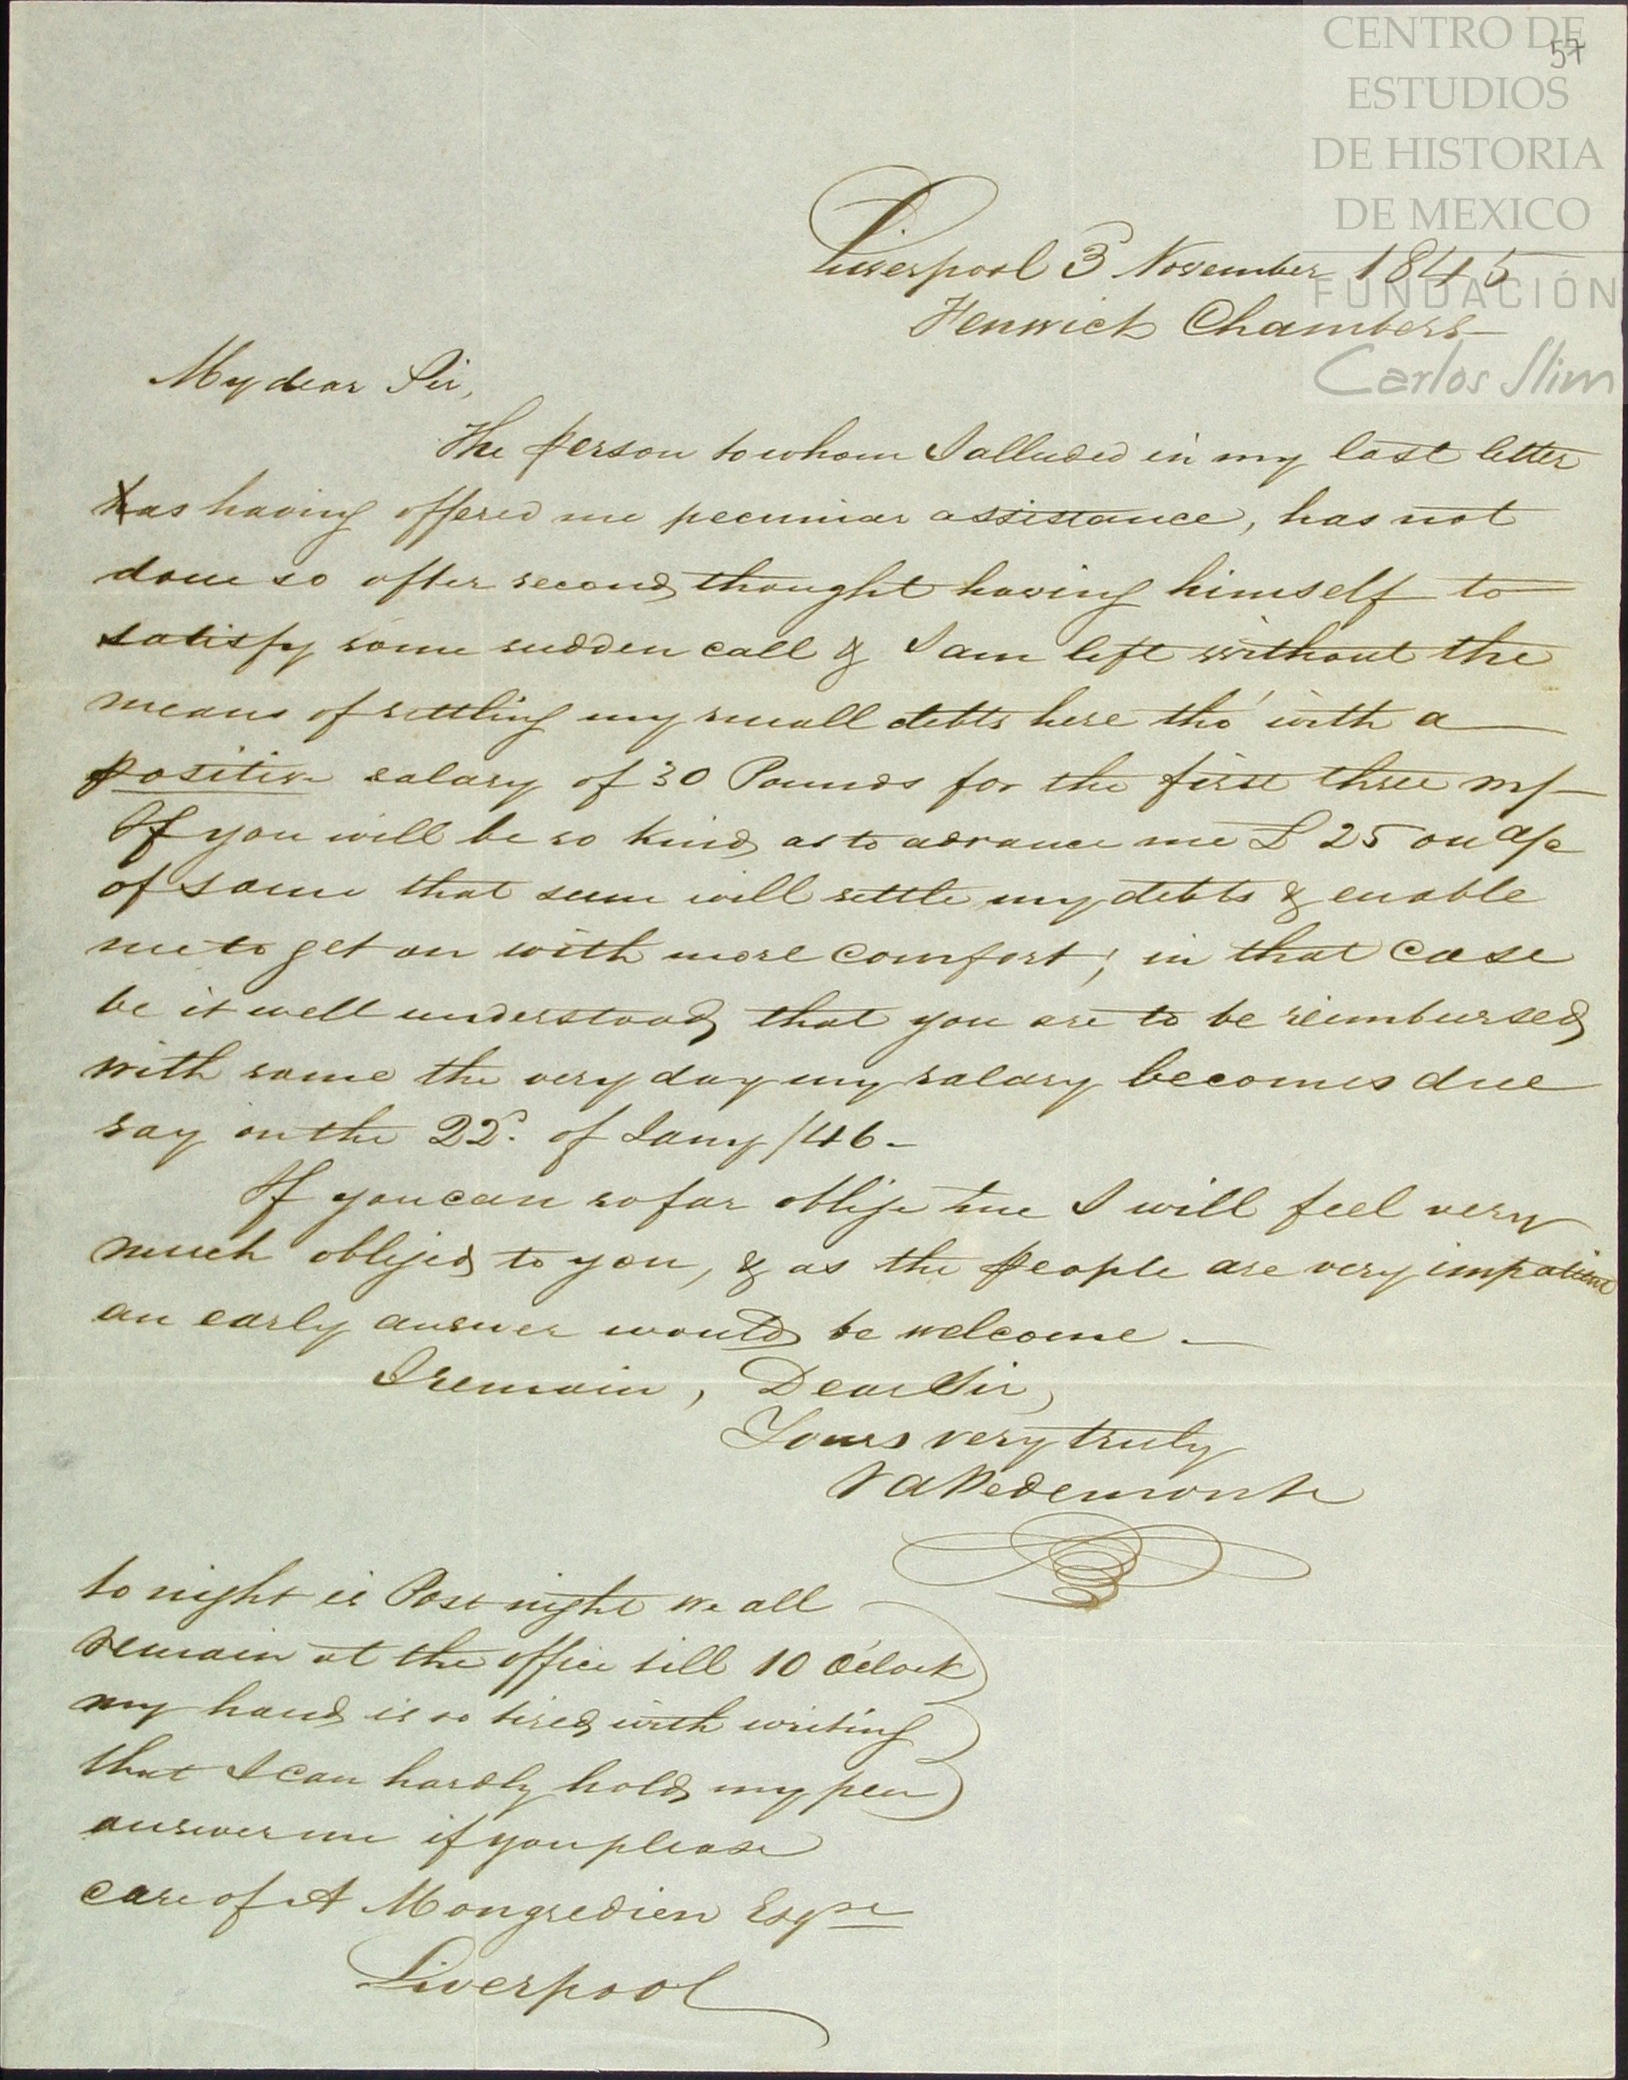 CENTRO DE
57
ESTUDIOS
DE HISTORIA
DE MEXICO
FUNDACIÓN
Carlos Slim
Liverpool 3 November 1845
Fenwick Chambers
My dear Sir,
The person to whom I alluded in my last letter
as having offered me pecuniar assistance, has not
done so after second thought having himself to
satisfy some sudden call & I am left without the
means of settling my small debts here tho' with a
positive salary of 30 Pounds for the first three m/
If you will be so kind as to advance me £ 25 on a/c
of same that sum will settle my debts & enable
me to get on with more comfort; in that case
be it well understood that you are to be reimbursed
with same the very day my salary becomes due
say on the 22d. of Jany /46 -
If you can so far oblije me I will feel very
much oblijed to you, & as the people are very impatient
an early answer would be welcome. -
I remain, Dear Sir,
Yours very truly
Vapedemonte
to night is Post night we all
remain at the office till 10 O'clock
my hand is so tired with writing
that I can hardly hold my pen
answer me if you please
care of A Mongredien Esqre
Liverpool